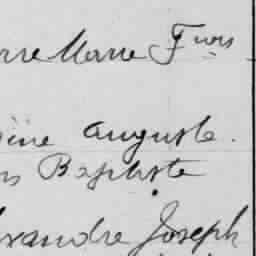 rre Marie Frois
Auguste.
ns Baptiste
exandre Joseph